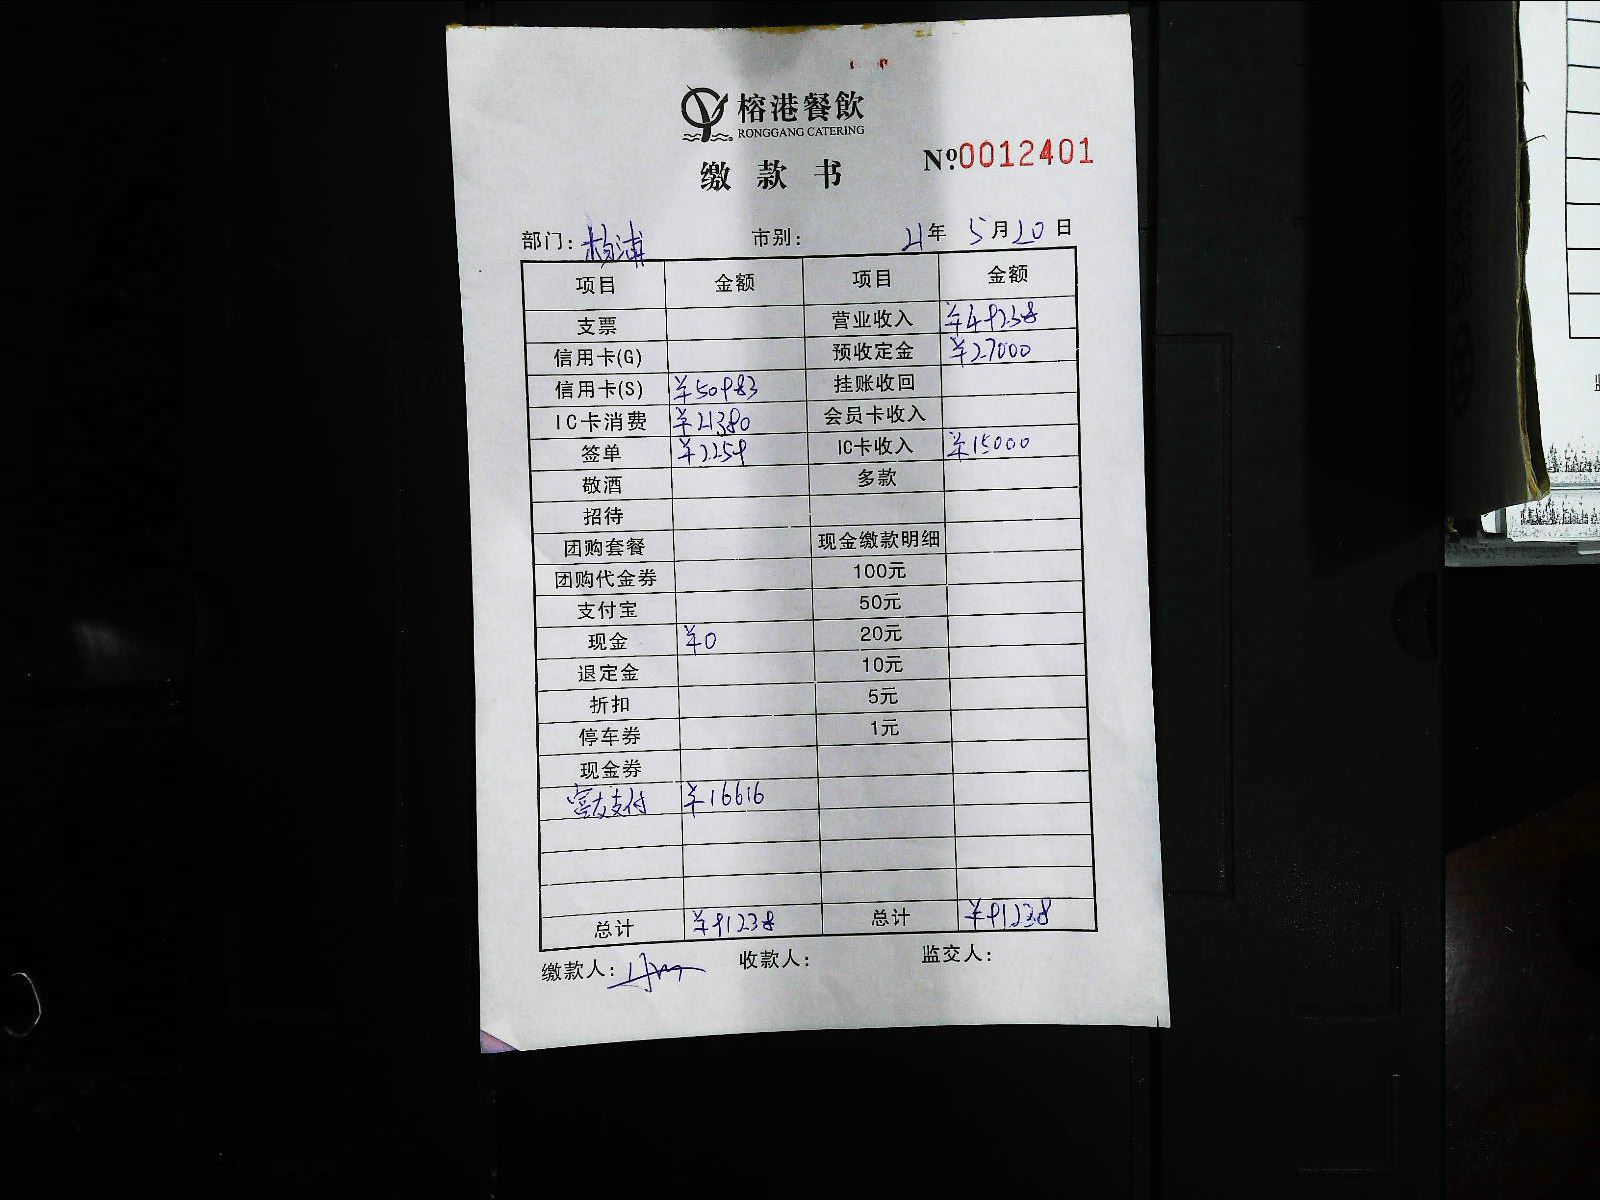 榕港餐飲
RONGGANG CATERING
缴款书
Nº:0012401
部门: 杨浦 市别: 21年 5月20日
项目 金额 项目 金额
支票 营业收入 ¥49238
信用卡(G) 预收定金 ¥27000
信用卡(S) ¥50983 挂账收回
IC卡消费 ¥21380 会员卡收入
签单 ¥2259 IC卡收入 ¥15000
敬酒 多款
招待
团购套餐 现金缴款明细
团购代金券 100元
支付宝 50元
现金 ¥0 20元
退定金 10元
折扣 5元
停车券 1元
现金券
富友支付 ¥16616
总计 ¥91238 总计 ¥91238
缴款人: 收款人: 监交人: